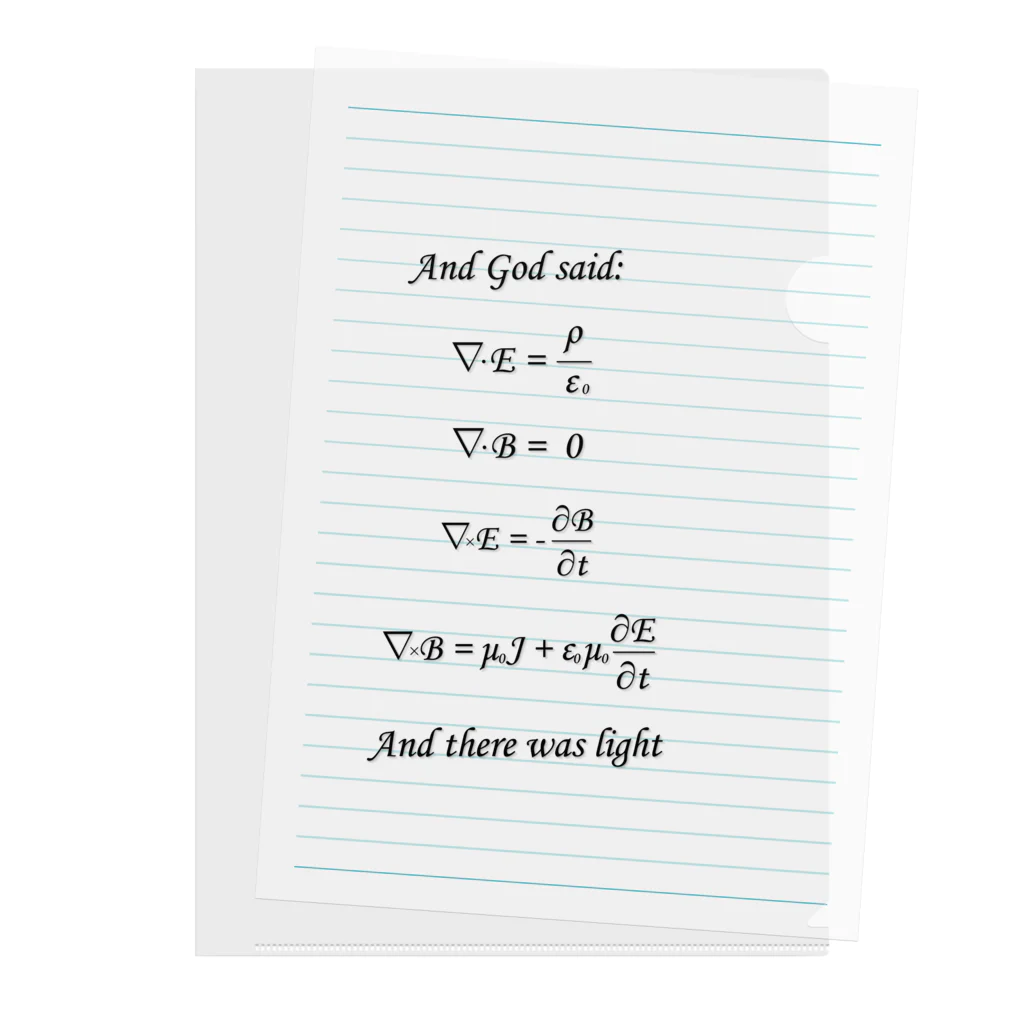 And God said:
∇·E = ρ/ε₀
∇·B = 0
∇×E = -∂B/∂t
∇×B = μ₀J + ε₀μ₀∂E/∂t
And there was light